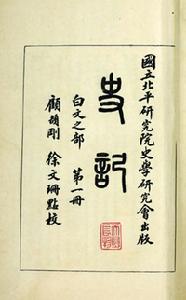 國立北平研究院史學研究會出版
史記
白文之部 第一冊
顧頡剛 徐文珊點校